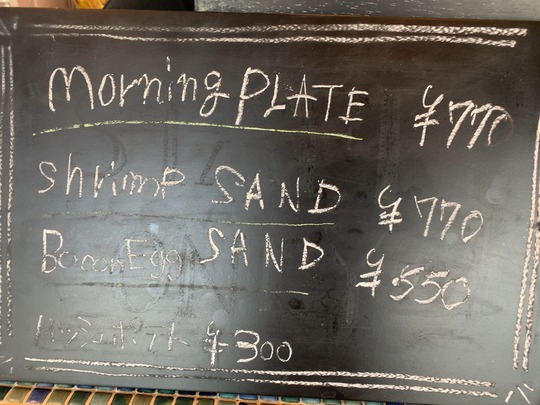 morning PLATE ¥770
shrimp SAND ¥770
BaconEgg SAND ¥550
ハッシュポテト ¥300